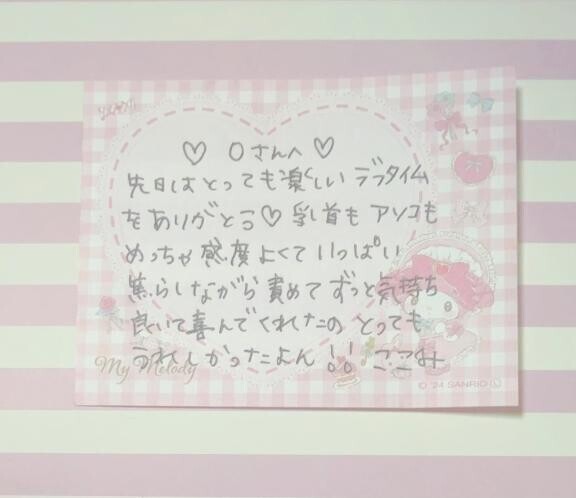 ♡ Oさんへ ♡
先日はとっても楽しいラブタイム
をありがとう♡ 乳首も アソコも
めっちゃ感度よくていっぱい
焦らしながら責めてずっと気持ち
良いて喜んでくれたの とっても
うれしかったよん!! ここみ
My Melody
© '24 SANRIO Ⓛ